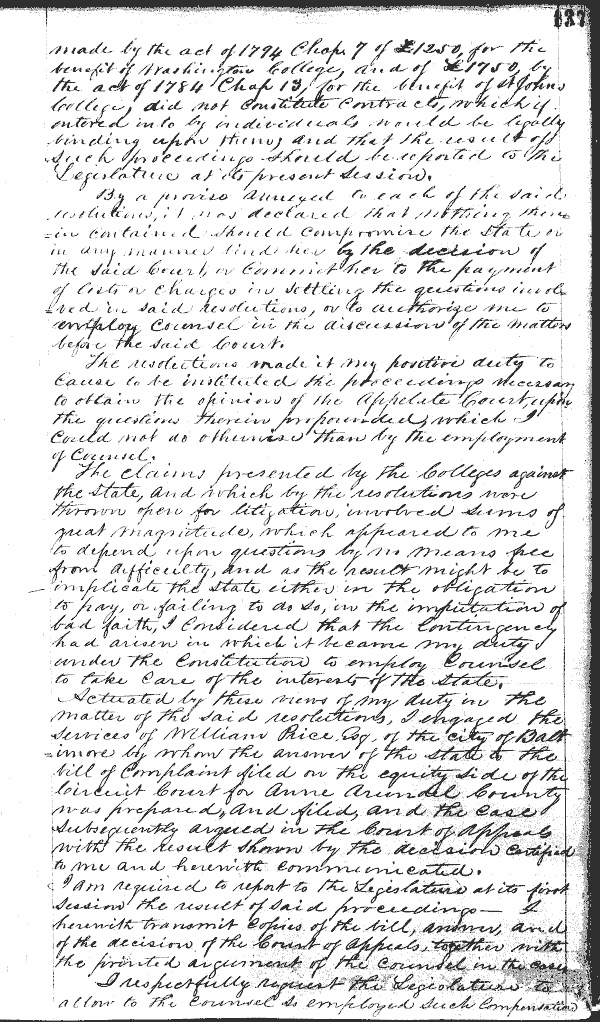 137
made by the act of 1794 Chap. 7 of £1250, for the
benefit of Washington College, and of £1750, by
the act of 1784 Chap 13, for the benefit of St Johns
College, did not constitute contracts, which if
entered into by individuals would be legally
binding upon them, and that the result of
such proceedings should be reported to the
Legislature at its present session.
By a proviso annexed to each of the said
resolutions, it was declared that nothing there=
=in contained should compromise the State or
in any manner bind her by the decision of
the said Court, or commit her to the payment
of costs or charges in settling the questions invol
=ved in said resolutions, or to authorize me to
employ Counsel in the discussion of the matters
before the said Court.
The resolutions made it my positive duty to
cause to be instituted the proceedings necessary
to obtain the opinion of the Appelate Court, upon
the questions therein propounded, which I
could not do otherwise than by the employment
of Counsel.
The claims presented by the Colleges against
the State, and which by the resolutions were
thrown open for litigation, involved sums of
great magnitude, which appeared to me
to depend upon questions by no means free
from difficulty, and as the result might be to
implicate the State either in the obligation
to pay, or failing to do so, in the imputation of
bad faith, I considered that the contingency
had arisen in which it became my duty
under the Constitution to employ Counsel
to take care of the interests of the State.
Actuated by these views of my duty in the
matter of the said resolutions, I engaged the
services of William Price Esq. of the city of Balt
=imore by whom the answer of the State to the
bill of Complaint filed on the equity side of the
Circuit Court for Anne Arundel County
was prepared, and filed, and the case
subsequently argued in the Court of Appeals
with the result shown by the decision certified
to me and herewith communicated.
I am required to report to the Legislature at its first
session the result of said proceedings — I
herewith transmit copies of the bill, answer, and
of the decision of the Court of Appeals, together with
the printed argument of the Counsel in the case
I respectfully request the Legislature to
allow to the Counsel so employed such compensation